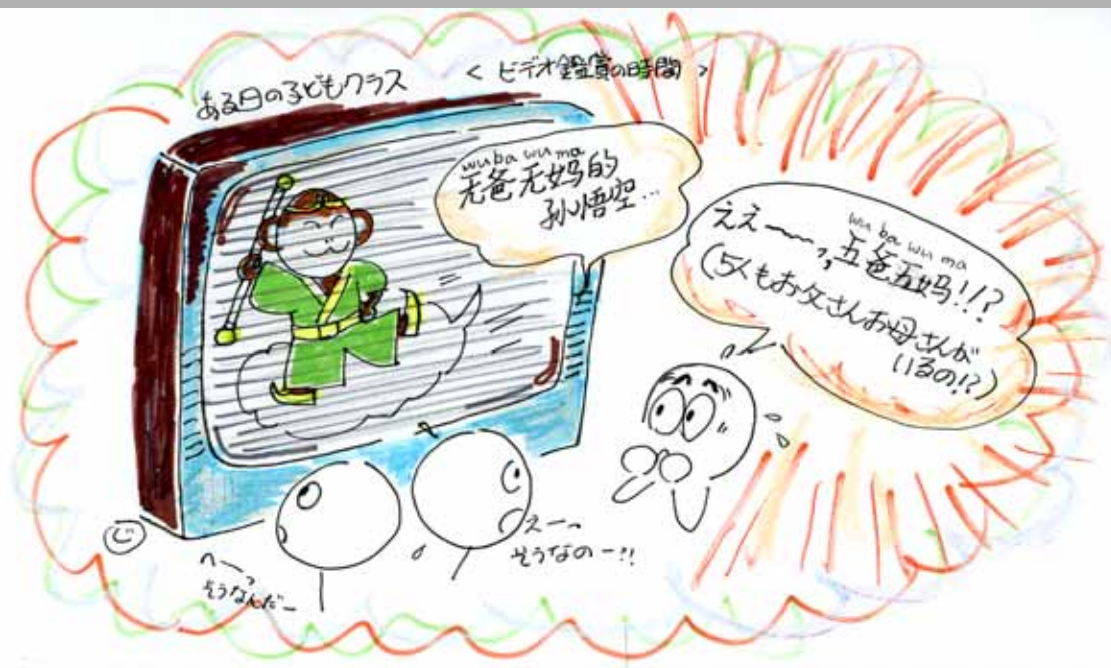 ある日の子どもクラス
< ビデオ鑑賞の時間 >
wu ba wu ma
无爸无妈的
孙悟空…
wu ba wu ma
ええ〜〜っ, 五爸五妈!!?
(5人もお父さんお母さんが
いるの!?)
じ
へーっ
そうなんだー
えーっ
そうなのー!!